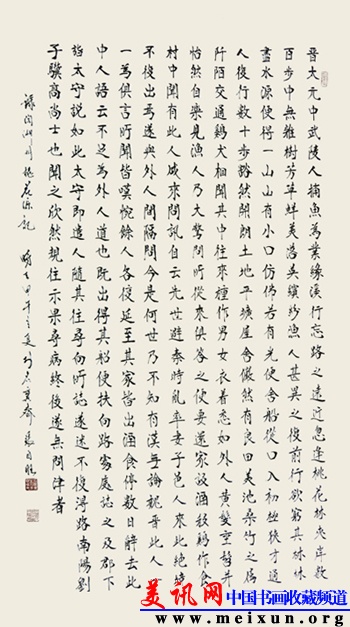 晉太元中武陵人捕魚為業緣溪行忘路之遠近忽逢桃花林夾岸數
百步中無雜樹芳草鮮美落英繽紛漁人甚異之復前行欲窮其林林
盡水源便得一山山有小口仿佛若有光便舍船從口入初極狹才通
人復行數十步豁然開朗土地平曠屋舍儼然有良田美池桑竹之屬
阡陌交通雞犬相聞其中往來種作男女衣着悉如外人黃髮垂髫并
怡然自樂見漁人乃大驚問所從來俱答之便要還家設酒殺雞作食
村中聞有此人咸來問訊自云先世避秦時亂率妻子邑人來此絕境
不復出焉遂與外人間隔問今是何世乃不知有漢無論魏晉此人
一為俱言所聞皆嘆惋餘人各復延至其家皆出酒食停數日辭去此
中人語云不足為外人道也既出得其船便扶向路處處誌之及郡下
詣太守說如此太守即遣人隨其往尋向所誌遂迷不復得路南陽劉
子驥高尚士也聞之欣然規往未果尋病終後遂無問津者
錄陶淵明桃花源記 甲午之夏
美讯网 中国书画收藏频道
www.meixun.org